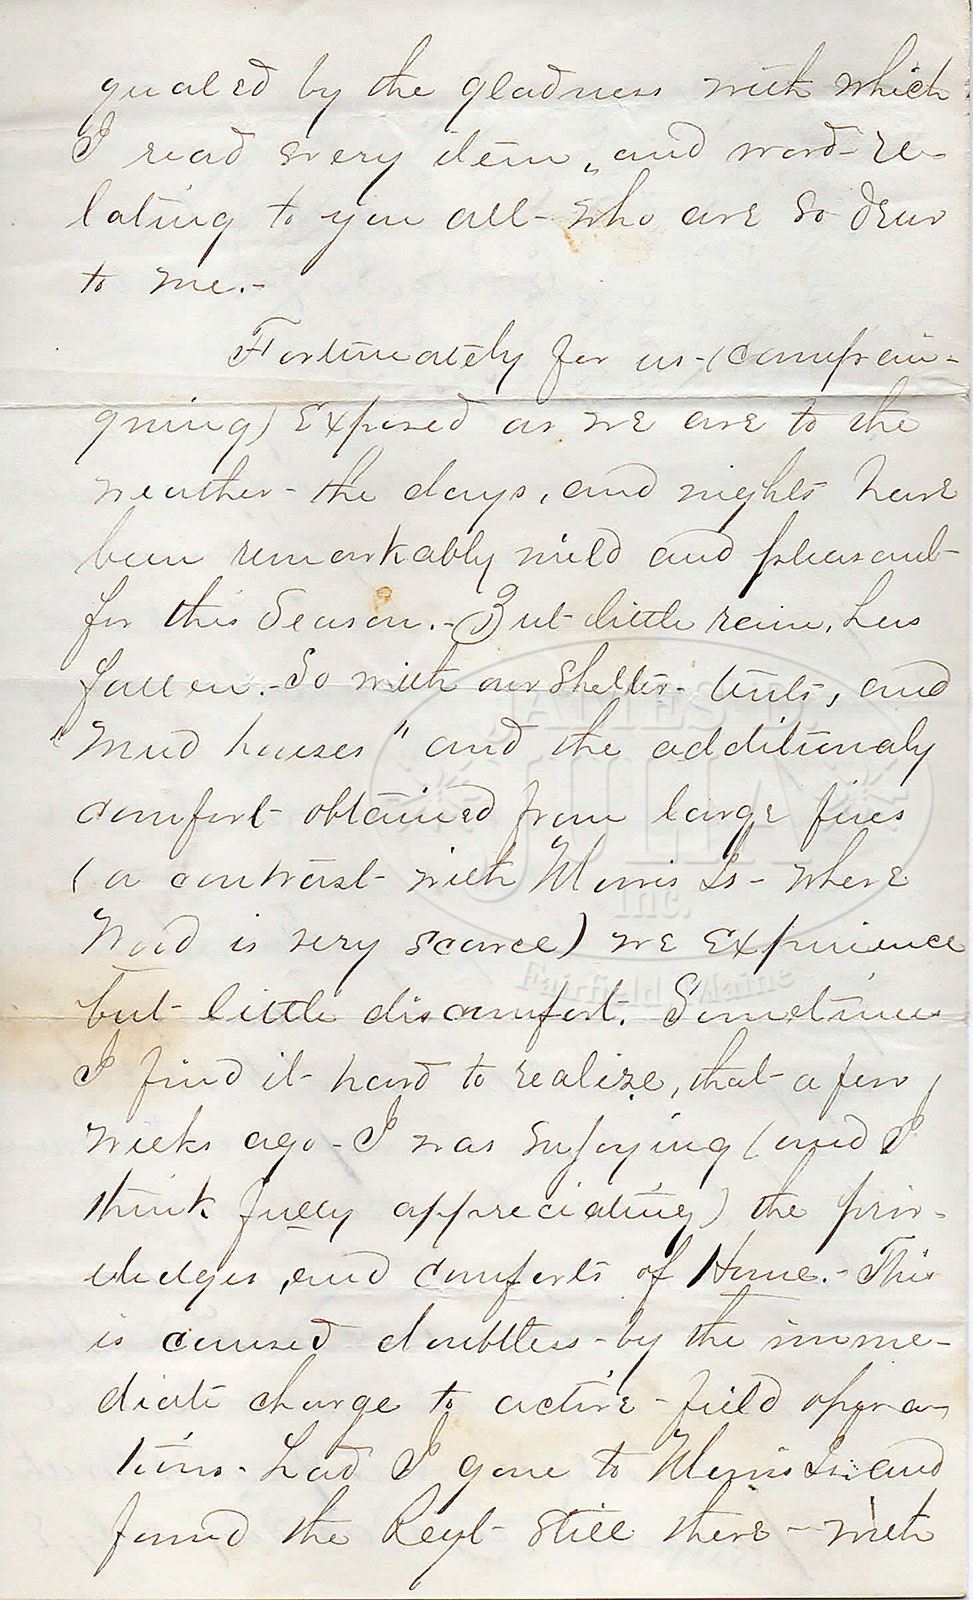 qualed by the gladness with which
I read every item, and word re-
lating to you all - who are so dear
to me.-
Fortunately for us - (campai-
gning) exposed as we are to the
weather - the days, and nights have
been remarkably mild and pleasant-
for this Season.- But little rain, has
fallen.- So with our shelter- tents, and
"Mud houses" and the additionaly
comfort obtained from large fires
(a contrast with Morris Is - where
Wood is very scarce) we experience
but little discomfort. Sometimes
I find it hard to realize, that a few
weeks ago - I was enjoying (and I
think fully appreciating) the priv-
iledges, and comforts of Home.- This
is caused doubtless - by the imme-
diate change to active - field opera-
tions - had I gone to Morris Is. and
found the Regt - still there - with
JAMES D. JULIA Inc.
Fairfield, Maine